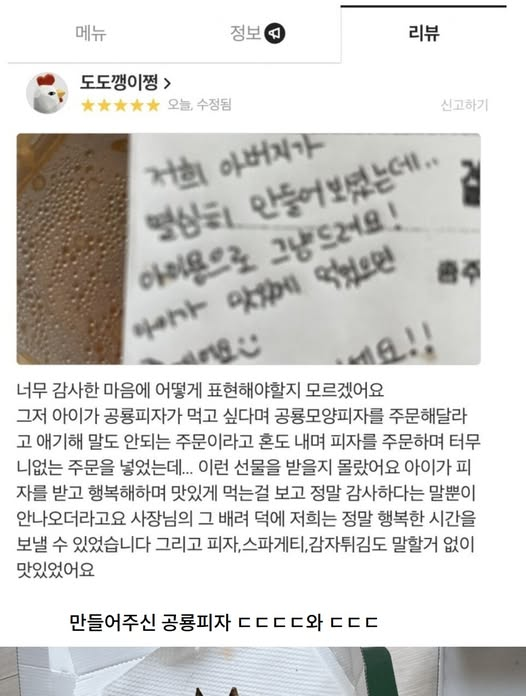 메뉴
정보
리뷰
도도깽이쩡 >
오늘, 수정됨
신고하기
저희 아버지가
열심히 만들어보셨는데..
아이용으로 그냥드려요!
아이가 맛있게 먹었으면
너무 감사한 마음에 어떻게 표현해야할지 모르겠어요
그저 아이가 공룡피자가 먹고 싶다며 공룡모양피자를 주문해달라
고 얘기해 말도 안되는 주문이라고 혼도 내며 피자를 주문하며 터무
니없는 주문을 넣었는데... 이런 선물을 받을지 몰랐어요 아이가 피
자를 받고 행복해하며 맛있게 먹는걸 보고 정말 감사하다는 말뿐이
안나오더라고요 사장님의 그 배려 덕에 저희는 정말 행복한 시간을
보낼 수 있었습니다 그리고 피자,스파게티,감자튀김도 말할거 없이
맛있었어요
만들어주신 공룡피자 ㄷㄷㄷㄷ와 ㄷㄷㄷ